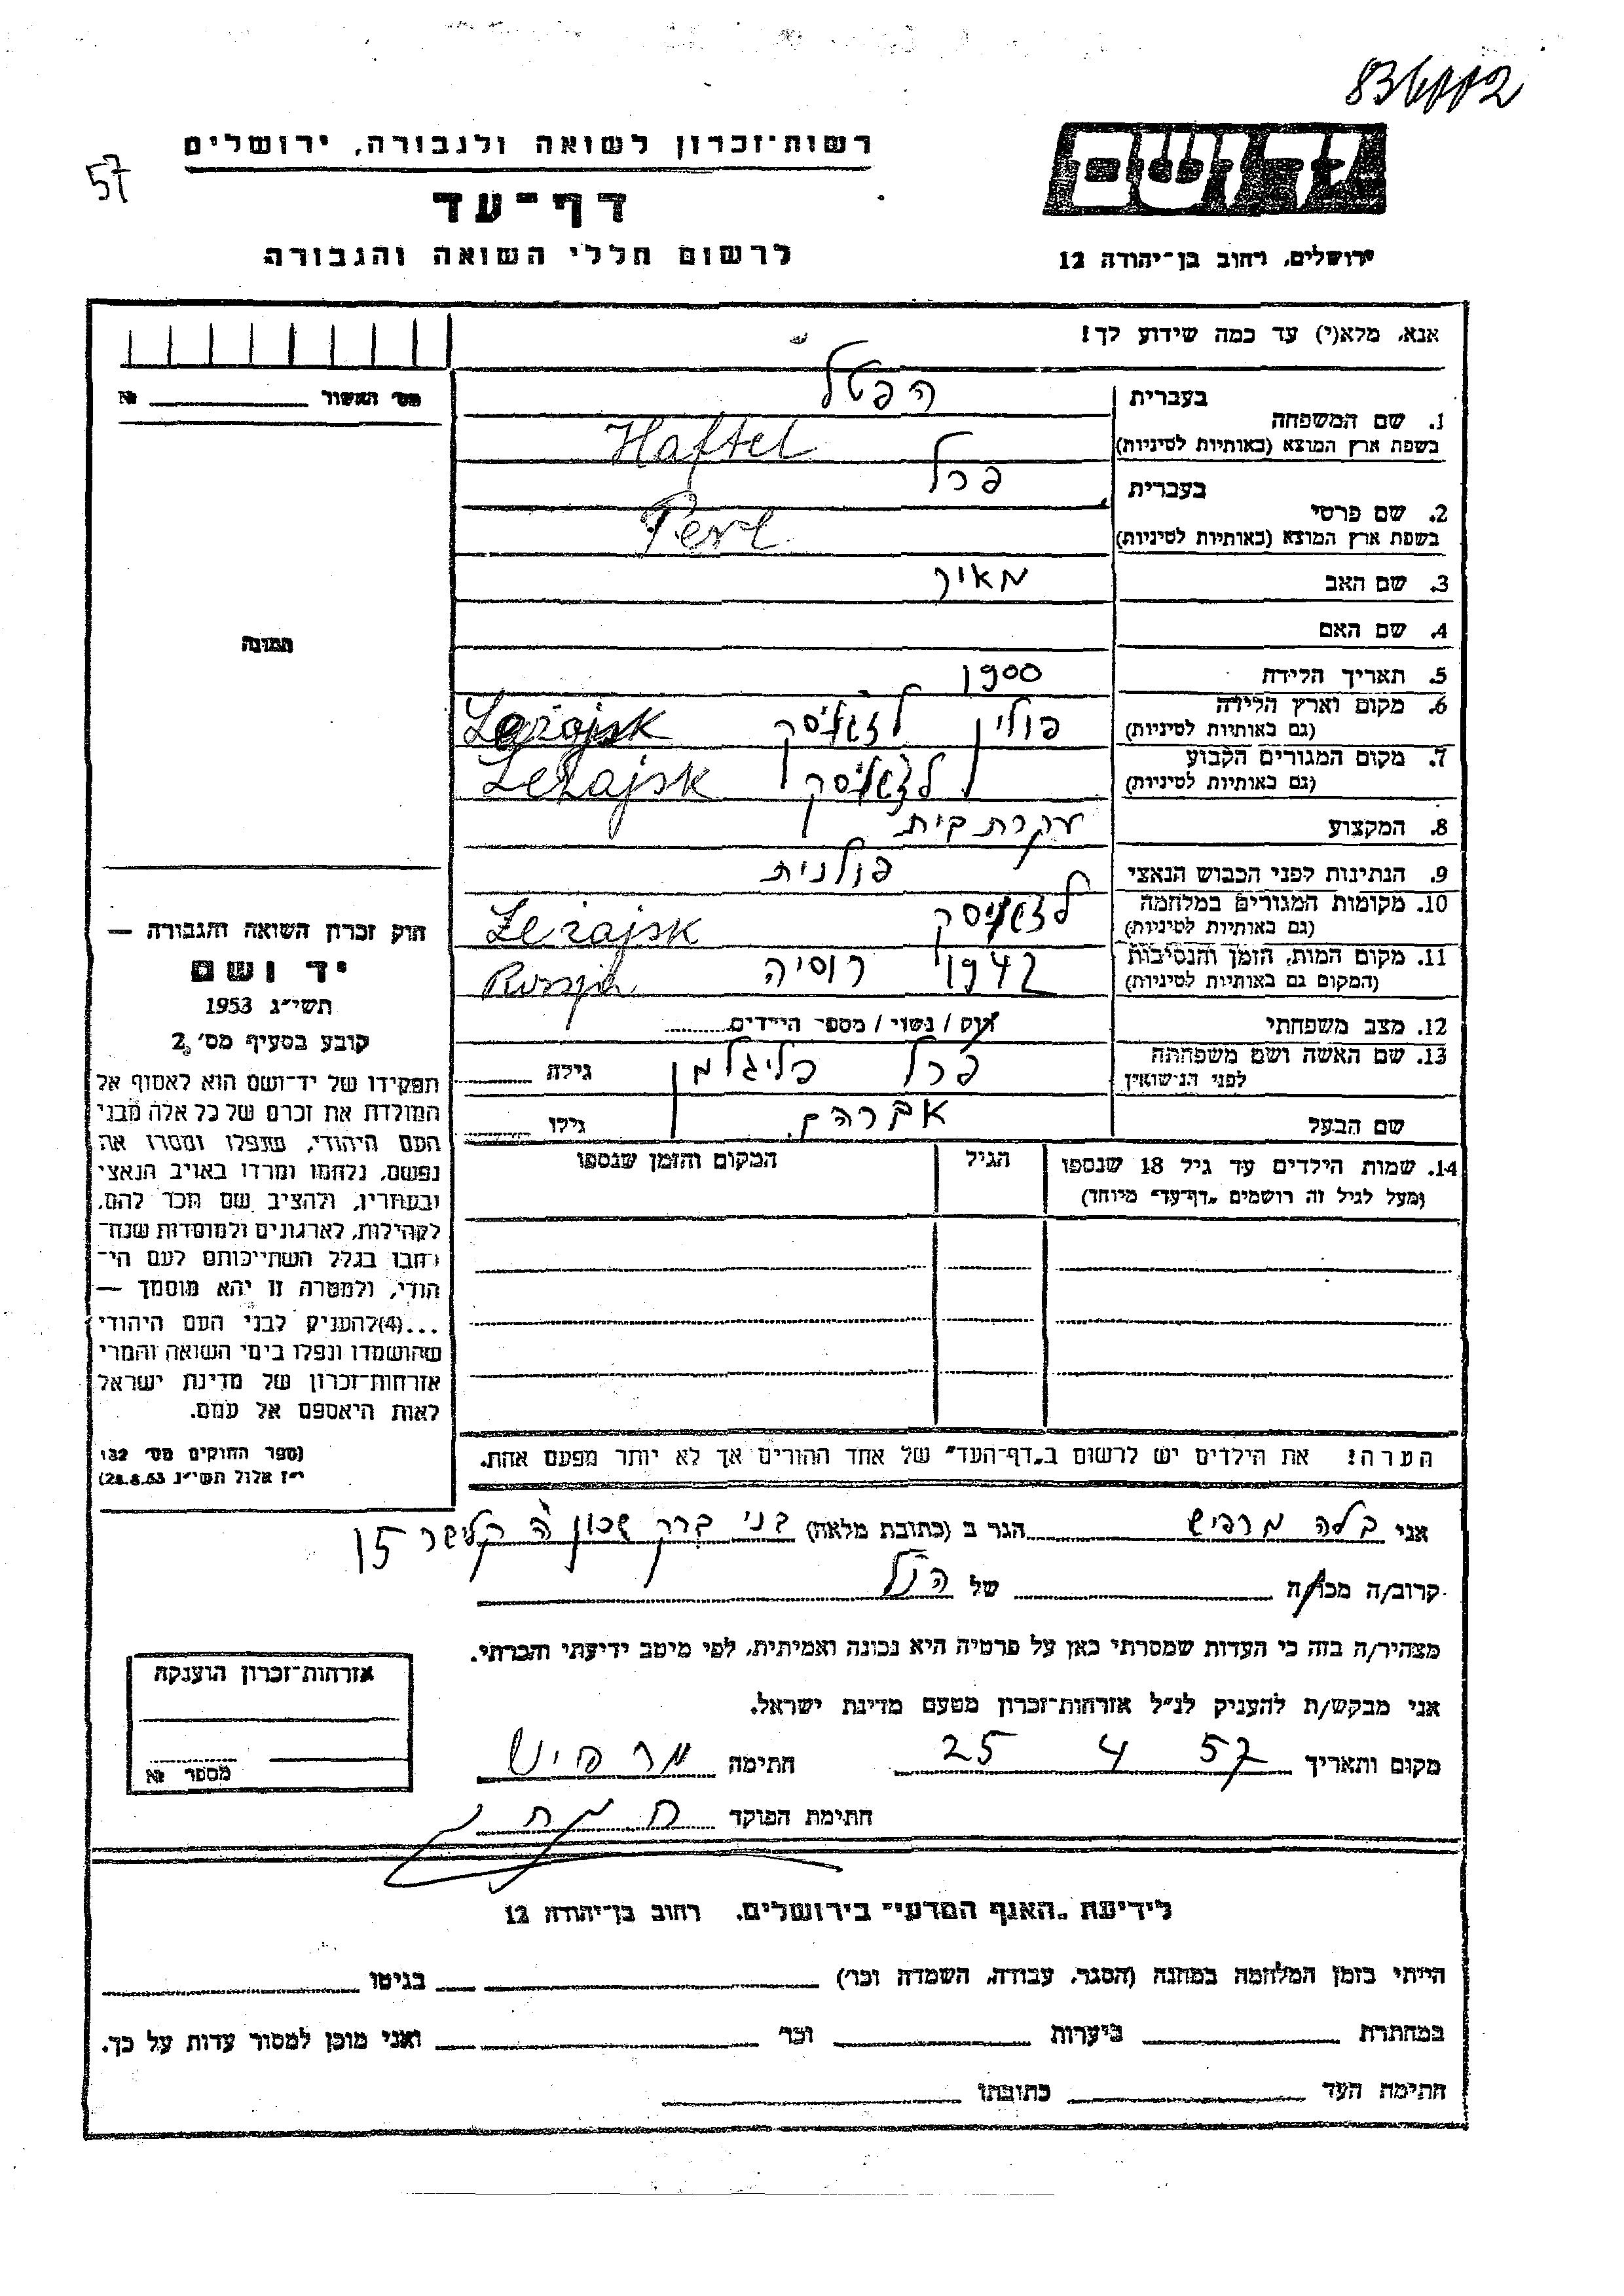 836112
57
רשות־זכרון לשואה ולגבורה, ירושלים
יד ושם
דף־עד
לרשום חללי השואה והגבורה
ירושלים, רחוב בן־יהודה 12
אנא, מלא(י) עד כמה שידוע לך!
מס׳ האשור № 
1. שם המשפחה בעברית הפטל
בשפת ארץ המוצא (באותיות לטיניות) Haftel
2. שם פרטי בעברית פרל
בשפת ארץ המוצא (באותיות לטיניות) Perl
3. שם האב מאיר
4. שם האם
תמונה
5. תאריך הלידה 1900
6. מקום וארץ הלידה (גם באותיות לטיניות) פולין לזשייסק Leżajsk
7. מקום המגורים הקבוע (גם באותיות לטיניות) לזשייסק Leżajsk
8. המקצוע עקרת בית
9. הנתינות לפני הכבוש הנאצי פולנית
10. מקומות המגורים במלחמה (גם באותיות לטיניות) לזשייסק Leżajsk
11. מקום המות, הזמן והנסיבות (המקום גם באותיות לטיניות) 1942 רוסיה Russja
12. מצב משפחתי רווק / נשוי / מספר הילדים
13. שם האשה ושם משפחתה לפני הנישואין פרל גילה
שם הבעל אברהם גילו
14. שמות הילדים עד גיל 18 שנספו הגיל המקום והזמן שנספו
(מעל לגיל זה רושמים „דף־עד״ מיוחד)
חוק זכרון השואה והגבורה —
יד ושם
תשי״ג 1953
קובע בסעיף מס׳ 2
תפקידו של יד־ושם הוא לאסוף אל
המולדת את זכרם של כל אלה מבני
העם היהודי, שנפלו ומסרו את
נפשם, נלחמו ומרדו באויב הנאצי
ובעוזריו, ולהציב שם וזכר להם,
לקהילות, לארגונים ולמוסדות שנח־
רבו בגלל השתייכותם לעם הי־
הודי, ולמטרה זו יהא מוסמך —
...(4)להעניק לבני העם היהודי
שהושמדו ונפלו בימי השואה והמרי
אזרחות־זכרון של מדינת ישראל
לאות היאספם אל עמם.
(ספר החוקים מס׳ 132
י״ז אלול תשי״ג 28.8.53)
הערה: את הילדים יש לרשום ב„דף־העד״ של אחד ההורים אך לא יותר מפעם אחת.
אני בלה מרפיש הגר ב (כתובת מלאה) בני ברק שכון ה קלישר 15
קרוב/ה מכר/ה של הנ״ל
מצהיר/ה בזה כי העדות שמסרתי כאן על פרטיה היא נכונה ואמיתית, לפי מיטב ידיעתי והכרתי.
אני מבקש/ת להעניק לנ״ל אזרחות־זכרון מטעם מדינת ישראל.
מקום ותאריך 25 4 57 חתימה מרפיש
חתימת הפוקד
אזרחות־זכרון הוענקה
מספר №
לידיעת „האגף המדעי״ בירושלים, רחוב בן־יהודה 12
הייתי בזמן המלחמה במחנה (הסגר, עבודה, השמדה וכו׳) בגיטו
במחתרת ביערות וכו׳ ואני מוכן למסור עדות על כך.
חתימת העד כתובתו